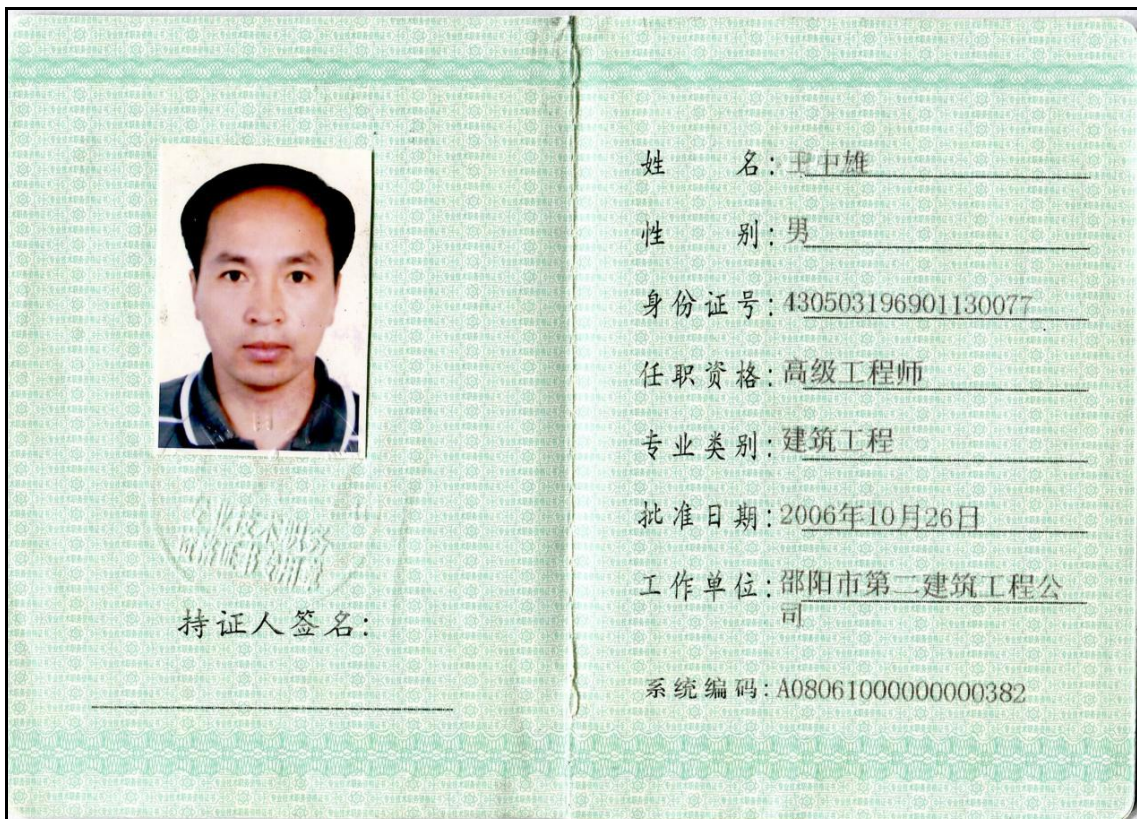 专业技术职务
持证人签名:
姓 名:王中雄
性 别:男
身份证号:430503196901130077
任职资格:高级工程师
专业类别:建筑工程
批准日期:2006年10月26日
工作单位:邵阳市第二建筑工程公
司
系统编码:A08061000000000382